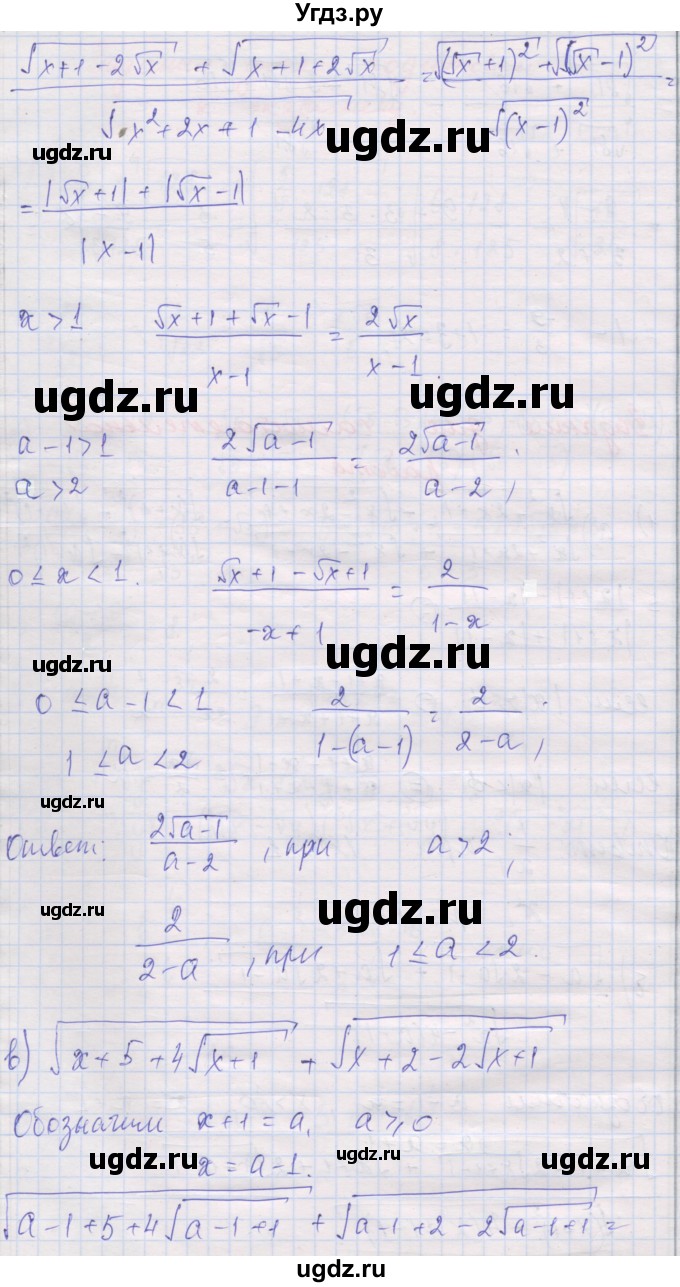 Угдз.ру
(√(x+1-2√x) + √(x+1+2√x)) / √(x²+2x+1-4x) = (√((√x+1)²) + √((√x-1)²)) / √((x-1)²) =
ugdz.ru ugdz.ru
= (|√x+1| + |√x-1|) / |x-1|
ugdz.ru
x > 1 (√x+1+√x-1) / (x-1) = 2√x / (x-1).
ugdz.ru ugdz.ru
a-1>1 2√(a-1) / (a-1-1) = 2√(a-1) / (a-2);
a>2
ugdz.ru
0 ≤ x < 1. (√x+1-√x+1) / (-x+1) = 2 / (1-x)
ugdz.ru ugdz.ru
0 ≤ a-1 < 1 2 / (1-(a-1)) = 2 / (2-a);
1 ≤ a < 2
ugdz.ru ugdz.ru
Ответ: 2√(a-1) / (a-2), при a>2;
ugdz.ru ugdz.ru
2 / (2-a), при 1 ≤ a < 2.
ugdz.ru ugdz.ru
в) √(x+5+4√(x+1)) + √(x+2-2√(x+1))
Обозначим x+1=a, a⩾0
x=a-1.
ugdz.ru ugdz.ru
√(a-1+5+4√(a-1+1)) + √(a-1+2-2√(a-1+1)) =
ugdz.ru ugdz.ru